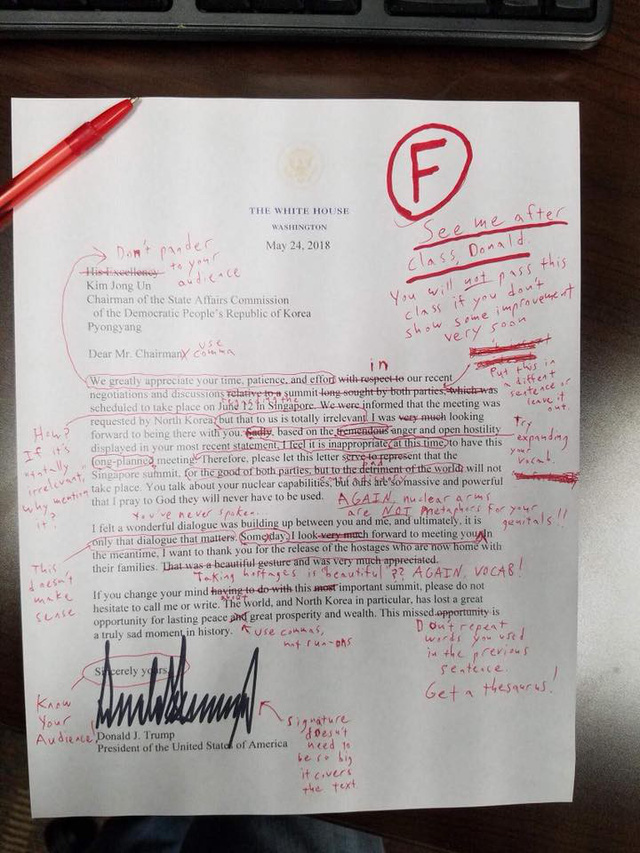 F
See me after
class, Donald.
You will not pass this
class if you don't
show some improvement
very soon
THE WHITE HOUSE
WASHINGTON
May 24, 2018
Don't pander
to your
audience
His Excellency
Kim Jong Un
Chairman of the State Affairs Commission
of the Democratic People's Republic of Korea
Pyongyang
Dear Mr. Chairman
use
comma
in
We greatly appreciate your time, patience, and effort with respect to our recent
negotiations and discussions relative to a summit long sought by both parties, which was
scheduled to take place on June 12 in Singapore. We were informed that the meeting was
requested by North Korea, but that to us is totally irrelevant. I was very much looking
forward to being there with you. Sadly, based on the tremendous anger and open hostility
displayed in your most recent statement, I feel it is inappropriate, at this time, to have this
long-planned meeting. Therefore, please let this letter serve to represent that the
Singapore summit, for the good of both parties, but to the detriment of the world, will not
take place. You talk about your nuclear capabilities, but ours are so massive and powerful
that I pray to God they will never have to be used.
Put this in
a different
sentence or
leave it
out.
Try
expanding
your
vocab
How?
If it's
"totally
irrelevant,"
why mention
it?
AGAIN, nuclear arms
are NOT metaphors for your
genitals!!
You've never spoken...
I felt a wonderful dialogue was building up between you and me, and ultimately, it is
only that dialogue that matters. Someday, I look very much forward to meeting you. In
the meantime, I want to thank you for the release of the hostages who are now home with
their families. That was a beautiful gesture and was very much appreciated.
This
doesn't
make
sense
Taking hostages is beautiful?? AGAIN, VOCAB!
If you change your mind having to do with this most important summit, please do not
about
hesitate to call me or write. The world, and North Korea in particular, has lost a great
opportunity for lasting peace and great prosperity and wealth. This missed opportunity is
a truly sad moment in history.
use commas,
not run-ons
Don't repeat
words you used
in the previous
sentence.
Get a thesaurus!
Sincerely yours,
Know
Your
Audience!
Donald J. Trump
President of the United States of America
Signature
doesn't
need to
be so big
it covers
the text